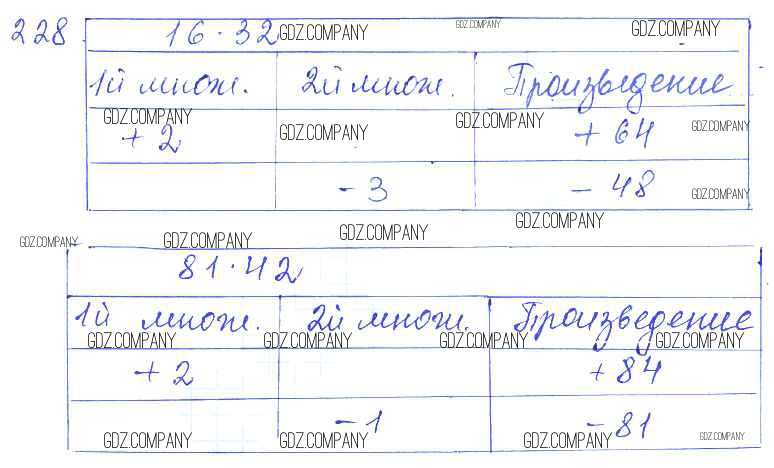 228 16·32 GDZ.COMPANY GDZ.COMPANY GDZ.COMPANY
1й множ. 2й множ. Произведение
GDZ.COMPANY GDZ.COMPANY GDZ.COMPANY GDZ.COMPANY
+2 +64
-3 -48 GDZ.COMPANY
GDZ.COMPANY GDZ.COMPANY GDZ.COMPANY GDZ.COMPANY
81·42
1й множ. 2й множ. Произведение
GDZ.COMPANY GDZ.COMPANY GDZ.COMPANY GDZ.COMPANY
+2 +84
-1 -81
GDZ.COMPANY GDZ.COMPANY GDZ.COMPANY GDZ.COMPANY